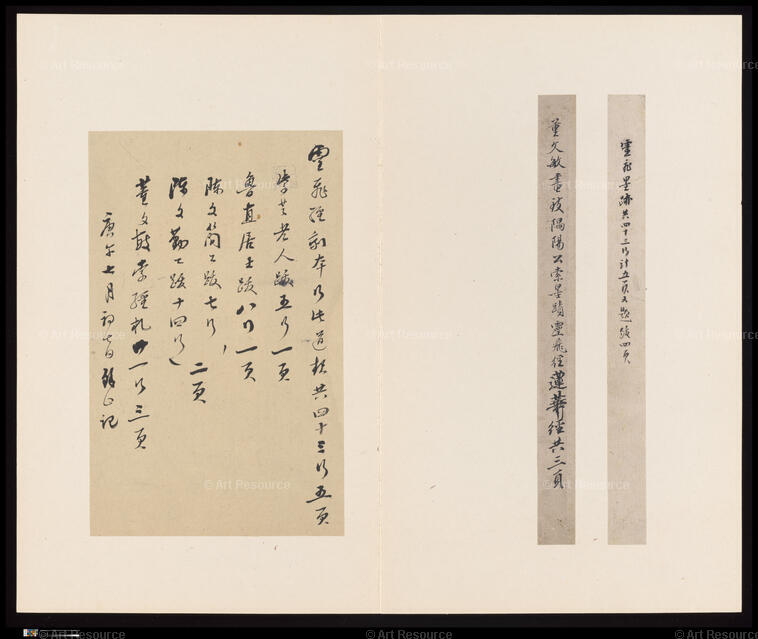 靈飛墨跡共四十三行計五頁又題跋四頁
董文敏書致隅陽公索墨蹟靈飛經蓮華經共三頁
靈飛經 共四十三行五頁
老人跋五行一頁
魯直居士跋八行一頁
陳文簡公跋七行
陳文勤公跋十四行
二頁
董文敏索經札廿一行三頁
庚午七月初七日 記
© Art Resource